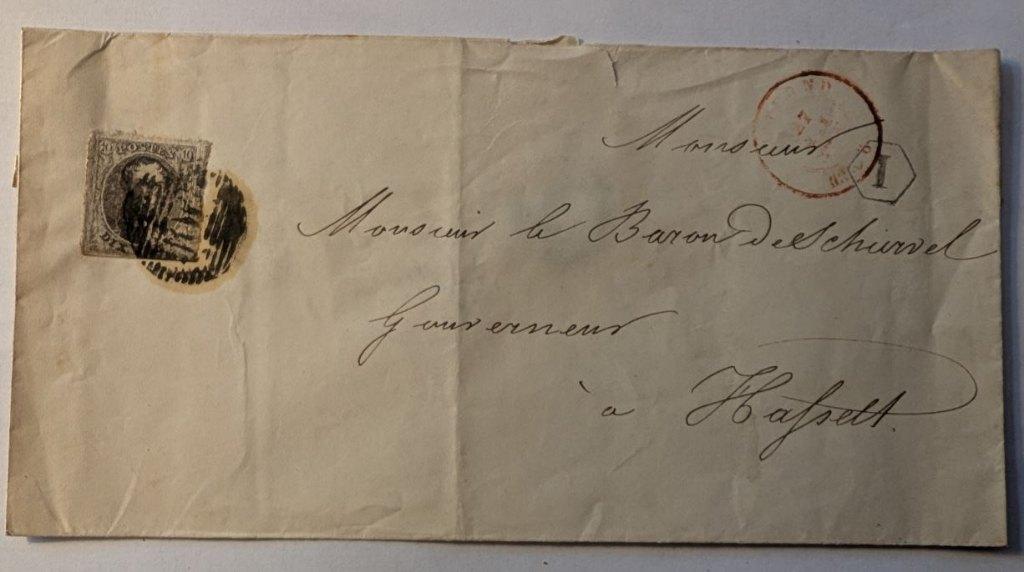 POSTES
Monsieur
I
Monsieur le Baron de Schiervel
Gouverneur
à Hasselt